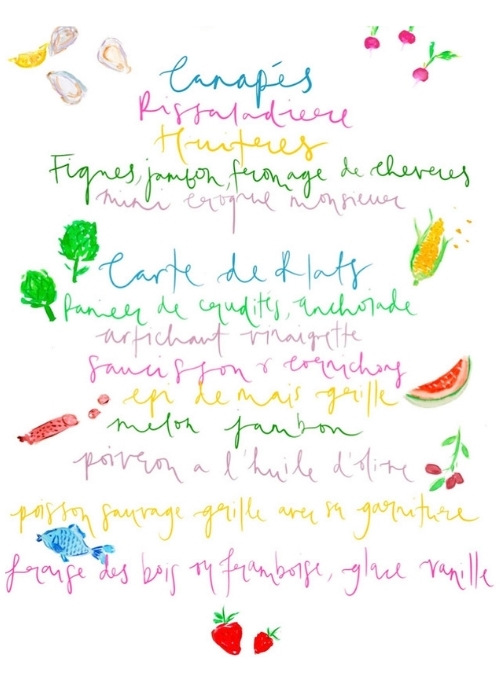 Canapés
Pissaladiere
Huitres
Figues, jambon, fromage de cheveres
mini croque monsieur
Carte de Plats
Panier de crudites, anchoiade
artichaut vinaigrette
saucisson & cornichons
epi de mais grille
melon jambon
poivron a l'huile d'olive
poisson sauvage grille avec sa garniture
fraise des bois ou framboise, glace vanille